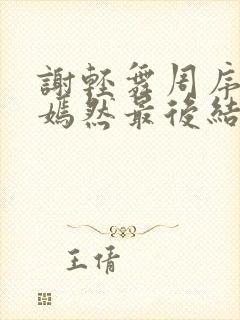 謝輕舞周序
嫣然最後結
王倩